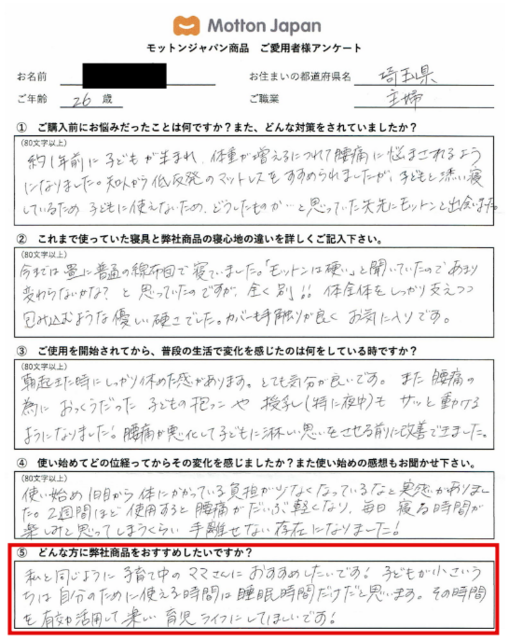 Motton Japan
モットンジャパン商品 ご愛用者様アンケート
お名前 お住まいの都道府県名 埼玉県
ご年齢 26 歳 ご職業 主婦
① ご購入前にお悩みだったことは何ですか?また、どんな対策をされていましたか?
(80文字以上)
約1年前に子どもが生まれ、体重が増えるにつれて腰痛に悩まされるよう
になりました。知人から低反発のマットレスをすすめられましたが、子どもと添い寝
しているため子どもに使えないため、どうしたものか…と思っていた矢先にモットンと出会いました。
② これまで使っていた寝具と弊社商品の寝心地の違いを詳しくご記入下さい。
(80文字以上)
今までは畳に普通の綿布団で寝ていました。「モットンは硬い」と聞いていたのであまり
変わらないかな?と思っていたのですが、全く別!!体全体をしっかり支えつつ
包み込むような優しい硬さでした。カバーも手触りが良くお気に入りです。
③ ご使用を開始されてから、普段の生活で変化を感じたのは何をしている時ですか?
(80文字以上)
朝起きた時にしっかり休めた感があります。とても気分が良いです。また腰痛の
為におっくうだった子どもの抱っこや授乳(特に夜中)もサッと動ける
ようになりました!腰痛が悪化して子どもに淋しい思いをさせる前に改善できました。
④ 使い始めてどの位経ってからその変化を感じましたか?また使い始めの感想もお聞かせ下さい。
(80文字以上)
使い始め1日目から体にかかっている負担が少なくなっているなと実感がありまし
た。2週間ほど使用すると腰痛がだいぶ軽くなり、毎日寝る時間が
楽しみと思ってしまうくらい手離せない存在になりました!
⑤ どんな方に弊社商品をおすすめしたいですか?
私と同じように子育て中のママさんにおすすめしたいです!子どもが小さいう
ちは自分のために使える時間は睡眠時間だけだと思います。その時間
を有効活用して楽しい育児ライフにしてほしいです!